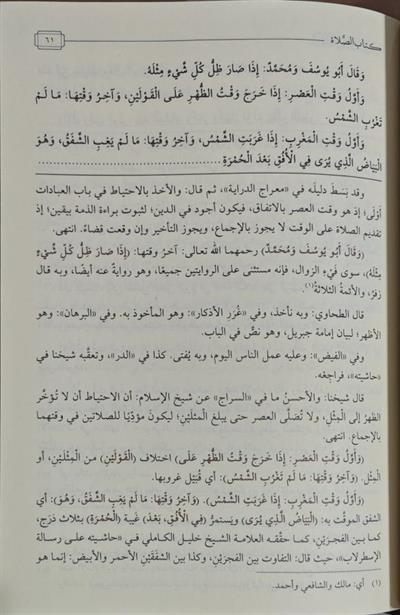 كتاب الصَّلاة
٦١
وَقَالَ أَبُو يُوسُفَ وَمُحَمَّدٌ: إِذَا صَارَ ظِلُّ كُلِّ شَيْءٍ مِثْلَهُ.
وَأَوَّلُ وَقْتِ الْعَصْرِ: إِذَا خَرَجَ وَقْتُ الظُّهْرِ عَلَى الْقَوْلَيْنِ، وَآخِرُ وَقْتِهَا: مَا لَمْ
تَغْرُبِ الشَّمْسُ.
وَأَوَّلُ وَقْتِ الْمَغْرِبِ: إِذَا غَرَبَتِ الشَّمْسُ، وَآخِرُ وَقْتِهَا: مَا لَمْ يَغِبِ الشَّفَقُ، وَهُوَ
الْبَيَاضُ الَّذِي يُرَى فِي الْأُفُقِ بَعْدَ الْحُمْرَةِ
وقد بَسَطَ دليلَه في «معراج الدراية»، ثم قال: والأخذ بالاحتياط في باب العبادات
أَوْلى؛ إذ هو وقت العصر بالاتفاق، فيكون أجود في الدين؛ لثبوت براءة الذمة بيقين؛ إذ
تقديم الصلاة على الوقت لا يجوز بالإجماع، ويجوز التأخير وإن وقعت قضاءً. انتهى.
(وَقَالَ أَبُو يُوسُفَ وَمُحَمَّدٌ) رحمهما الله تعالى: آخرُ وقتها: (إِذَا صَارَ ظِلُّ كُلِّ شَيْءٍ
مِثْلَهُ)، سوى فَيْءِ الزوال، فإنه مستثنى على الروايتين جميعًا، وهو روايةٌ عنه أيضًا، وبه قال
زفرُ، والأئمةُ الثلاثةُ(١).
قال الطحاوي: وبه نأخذ، وفي «غُرَرِ الأذكار»: وهو المأخوذ به. وفي «البرهان»: وهو
الأظهر؛ لبيان إمامة جبريل، وهو نصٌّ في الباب.
وفي «الفيض»: وعليه عمل الناس اليوم، وبه يُفتى. كذا في «الدر»، وتعقَّبه شيخنا في
«حاشيته»، فراجعه.
قال شيخنا: والأحسنُ ما في «السراج» عن شيخ الإسلام: أن الاحتياط أن لا تُؤَخَّر
الظهرُ إلى المِثْلِ، ولا تُصَلَّى العصر حتى يبلغ المثلَيْنِ؛ ليكونَ مؤدِّيًا للصلاتين في وقتهما
بالإجماع. انتهى.
(وَأَوَّلُ وَقْتِ الْعَصْرِ: إِذَا خَرَجَ وَقْتُ الظُّهْرِ عَلَى) اختلاف (الْقَوْلَيْنِ) من المِثْلَيْنِ، أو
المِثْلِ. (وَآخِرُ وَقْتِهَا: مَا لَمْ تَغْرُبِ الشَّمْسُ): أي قُبَيْلَ غروبها.
(وَأَوَّلُ وَقْتِ الْمَغْرِبِ: إِذَا غَرَبَتِ الشَّمْسُ). (وَآخِرُ وَقْتِهَا: مَا لَمْ يَغِبِ الشَّفَقُ، وَهُوَ): أي
الشفق الموقَّت به: (الْبَيَاضُ الَّذِي يُرَى) ويَستمرُّ (فِي الْأُفُقِ، بَعْدَ) غيبة (الْحُمْرَةِ) بثلاث دَرَجٍ،
كما بين الفجرَيْنِ، كما حقَّقه العلامة الشيخ خليل الكاملي في «حاشيته على رسالة
الإسطرلاب»، حيث قال: التفاوت بين الفجرَيْنِ، وكذا بين الشفَقَيْنِ الأحمر والأبيض: إنما هو
(١) أي: مالك والشافعي وأحمد.